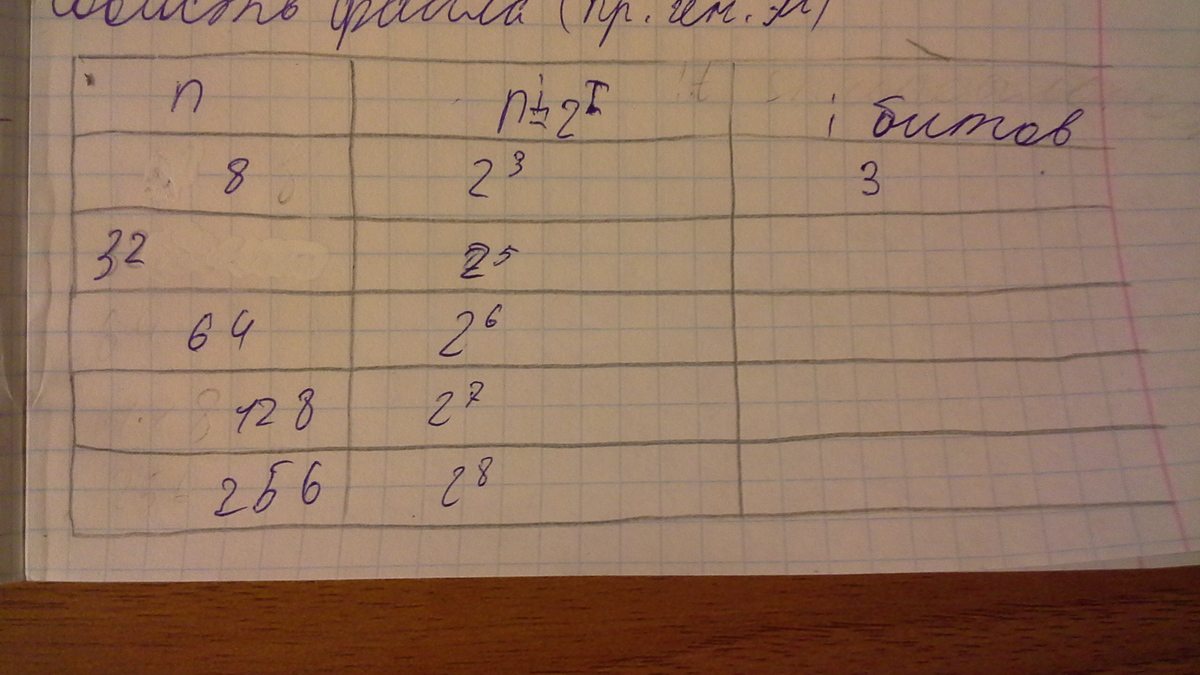 файла (пр.
n n=2^I i битов
8 2^3 3
32 2^5
64 2^6
128 2^7
256 2^8